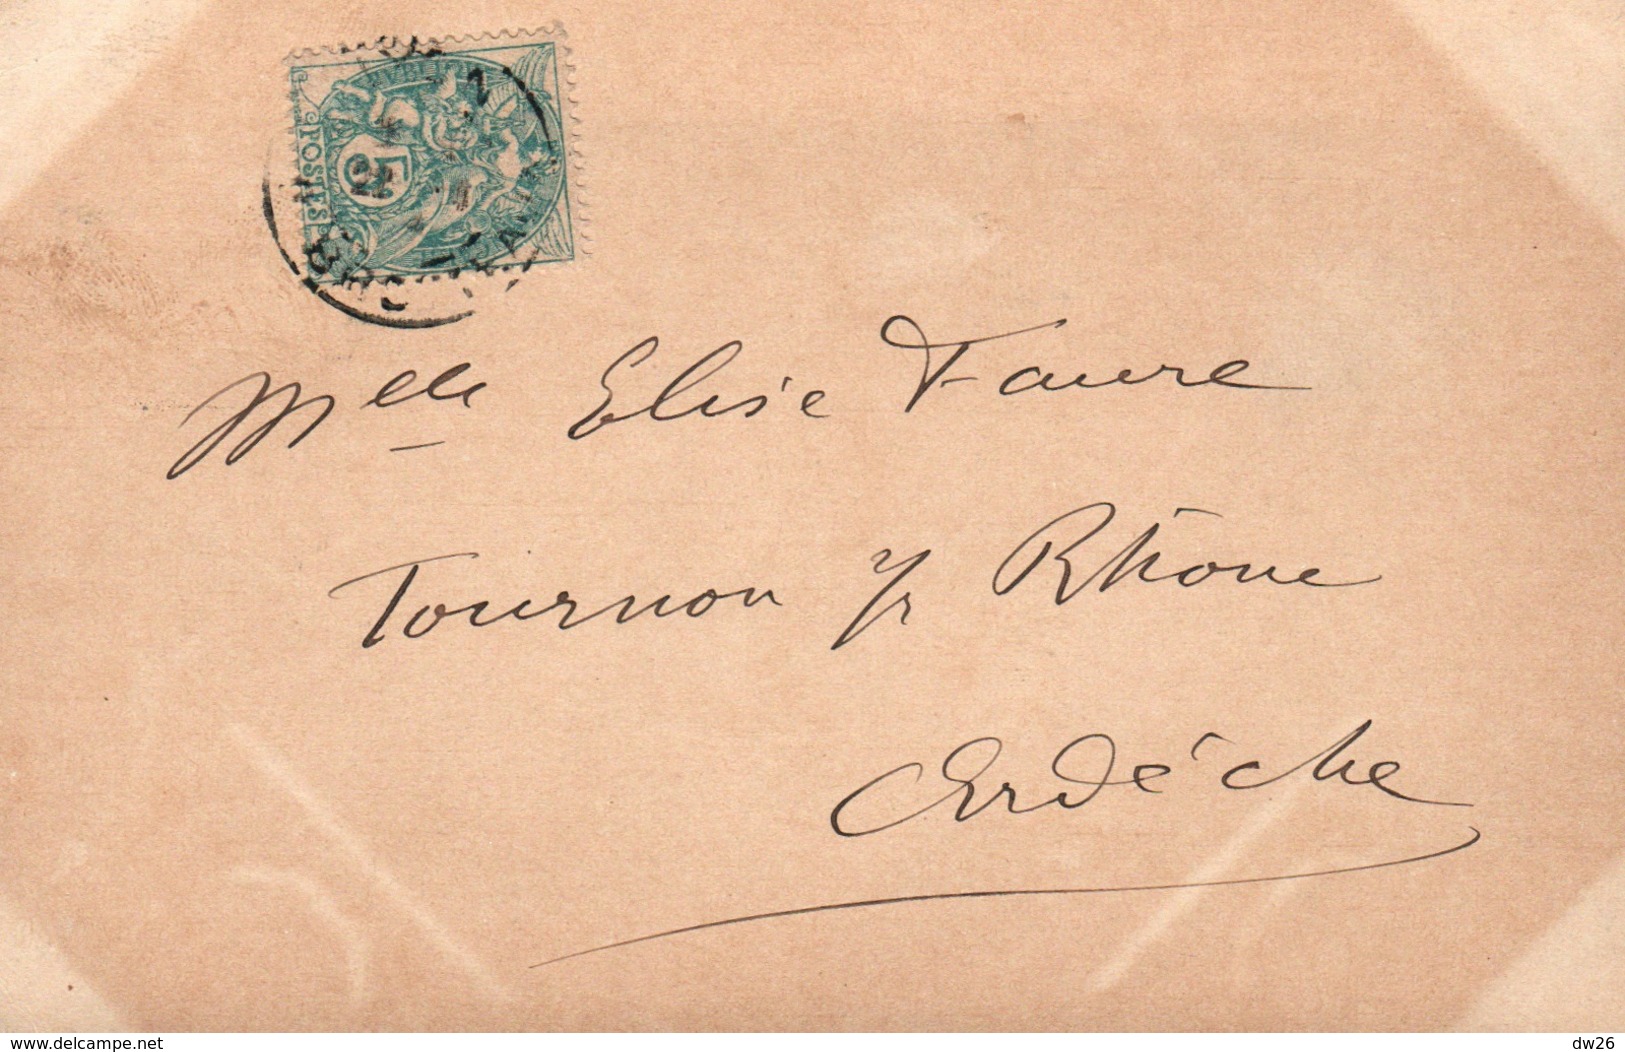 POSTES
5
Mlle Elise Faure
Tournon s/ Rhône
Ardèche
www.delcampe.net
dw26